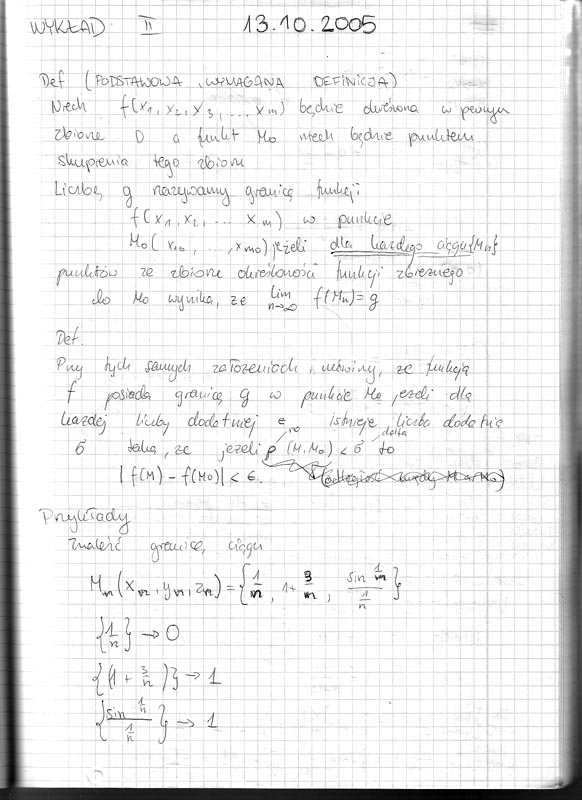 WYKŁAD II 13.10.2005
Def (PODSTAWOWA, WYMAGANA DEFINICJA)
Niech f(x₁, x₂, x₃, ... xₘ) będzie określona w pewnym
zbiorze D a punkt M₀ niech będzie punktem
skupienia tego zbioru
Liczbę g nazywamy granicą funkcji
f(x₁, x₂, ... xₘ) w punkcie
M₀(x₁₀, ..., xₘ₀) jeżeli dla każdego ciągu {Mₙ}
punktów ze zbioru określoności funkcji zbieżnego
do M₀ wynika, że lim n→∞ f(Mₙ) = g
Def.
Przy tych samych założeniach mówimy, że funkcja
f posiada granicę g w punkcie M₀ jeżeli dla
każdej liczby dodatniej ε istnieje liczba dodatnia
ro delta
δ taka, że jeżeli ρ(M, M₀) < δ to
|f(M) - f(M₀)| < ε.
Przykłady
Znaleźć granicę ciągu
Mₙ(xₙ, yₙ, zₙ) = {1/n, 1 + 3/n, sin 1/n / 1/n}
{1/n} → 0
{(1 + 3/n)} → 1
{sin 1/n / 1/n} → 1